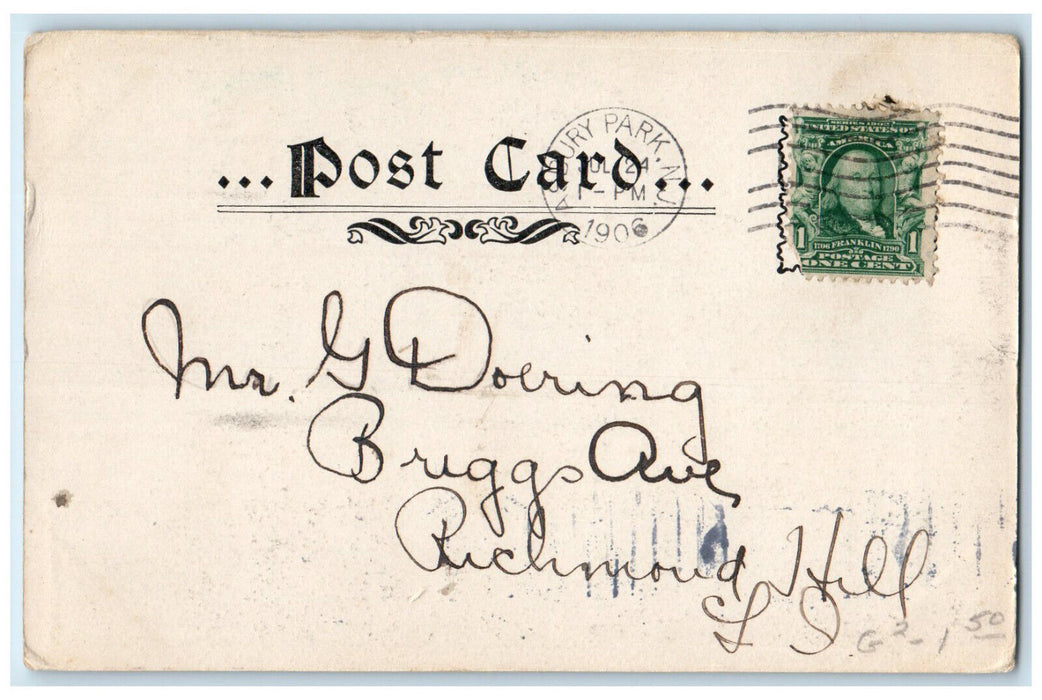 ... Post Card ...
ASBURY PARK, N.J.
1 - PM
1906
SERIES 1902
UNITED STATES OF
AMERICA
1 1
1706 FRANKLIN 1790
POSTAGE
ONE CENT
Mr. G Doering
Briggs Ave
Richmond Hill
L I
G2 - 1 50